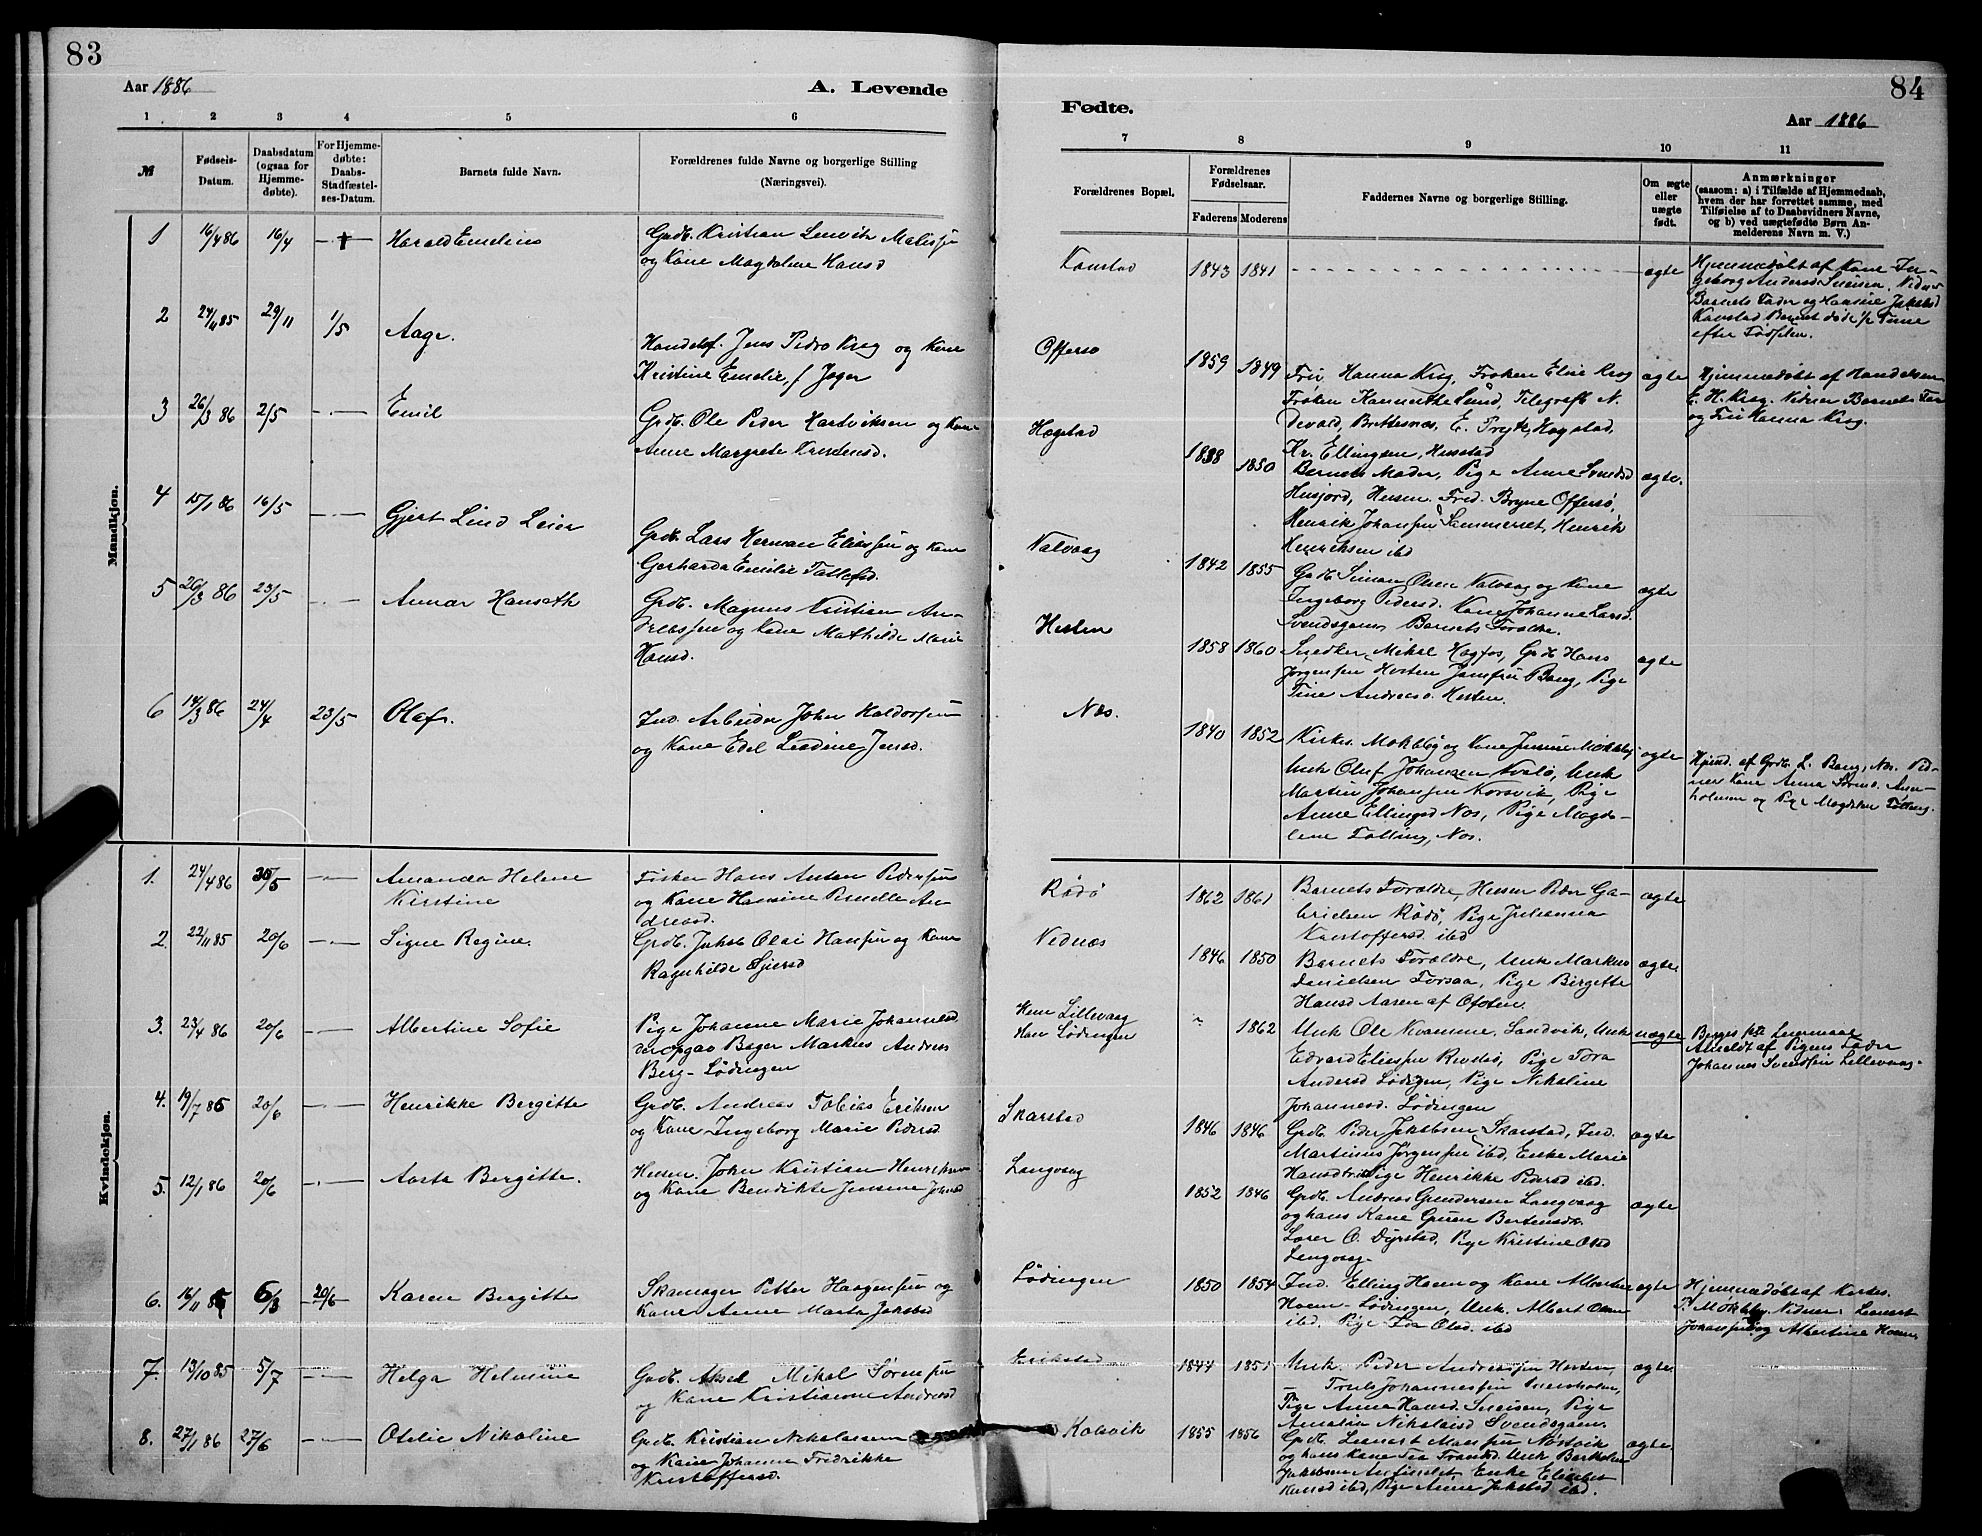 83
Aar 1886
A. Levende
1 2 3 4 5 6
№
Fødsels-
Datum.
Daabsdatum
(ogsaa for
Hjemme-
døbte).
For Hjemme-
døbte:
Daabs-
Stadfæstel-
ses-Datum.
Barnets fulde Navn.
Forældrenes fulde Navne og borgerlige Stilling
(Næringsvei).
Mandkjøn.
1 16/4 86 16/4 Harald Emelius
Grdb. Kristian Lenvik
og Kone Magdalene Hansd
2 24/11 85 29/11 1/5 Aage.
Handelsf. Jens Pedro Krog og Kone
Kristine Emelie, f Jeger
3 26/3 86 2/5 Emil
Grdb. Ole Peder Hartviksen og Kone
Anne Margrete Kristensd.
4 15/1 86 16/5 Gjert Lind Leier
Grdb. Lars Herman Eliassen og Kone
Gerharda Emilie
5 26/3 86 23/5 Annar Hanseth
Grdb. Magnus Kristian An-
dreassen og Kone Mathilde Marie
Hansd.
6 14/3 86 24/4 23/5 Olaf.
Ind. Arbeider John Haldorsen
og Kone Edel Leodine Jensd.
Kvindekjøn.
1. 24/4 86 30/5 Amanda Helene
Kirstine
Fisker Hans Antan Pedersen
og Kone Hansine Pernelle An-
dreasd.
2. 22/11 85 20/6 Signe Regine.
Grdb. Jakob Olai Hansen og Kone
Ragnhilde Sjursd
3. 23/4 86 20/6 Albertine Sofie
Pige Johanne Marie Johannesd.
der opgav Bager Markus Andreas
Berg - Lødingen
4. 19/7 85 20/6 Henrikke Bergitte
Grdb. Andreas Tobias Eriksen
og Kone Ingeborg Marie Pedersd
5. 12/1 86 20/6 Aasta Bergitte.
Husm. John Kristian Henriksen
og Kone Bendikte Jensine Johnsd
6. 16/11 85 6/3 20/6 Karen Bergitte
Skomager Petter Haagensen og
Kone Anne Marta Jakobsd
7. 13/10 85 5/7 Helga Helmine
Grdb. Aksel Mikal Sørensen
og Kone Kristianne Andersd
8. 27/1 86 27/6 Otelie Nikoline
Grdb. Kristian Nikolaisen
og Kone Johanna Fredrikke
Kristoffersd.
84
Fødte.
Aar 1886
7 8 9 10 11
Forældrenes Bopæl.
Forældrenes
Fødselsaar.
Faderens Moderens
Faddernes Navne og borgerlige Stilling.
Om ægte
eller
uægte
født.
Anmærkninger
(saasom: a) i Tilfælde af Hjemmedaab,
hvem der har forrettet samme, med
Tilføielse af to Daabsvidners Navne,
og b) ved uægtefødte Børn An-
melderens Navn m. V.)
Kanstad 1843 1841 ægte
Hjemmedøbt af Kone In-
geborg Andersd Sneisen. Vidner
Barnets Fader og Hansine Jakobsd
Kanstad Barnet døde 1/2 Time
efter Fødselen.
Offersø 1859 1849
Fru Hanna Krog, Frøken Elise Krog
Frøken Lund, Telegrafb. N.
Devold, Brettesnæs, E. Fryk, Hogstad,
Kr. Ellingsen, Husstad
ægte
Hjemmedøbt af Handelsm
E. H. Krog. Vidner Barnets Far
og Fru Hanna Krog.
Hogstad 1838 1850
Barnets Moder, Pige Anne Svendsd
Husjord, Husm. Fred. Bryne Offersø,
Henrik Johansen Sommerset, Henrik
Henriksen ibd
ægte.
Valvaag 1842 1855
Grdb Simon Olsen Valvaag og Kone
Ingeborg Pedersd. Kone Johanna Larsd.
Svendsgam, Barnets Forældre.
ægte
Hesten 1858 1860
Snedker Mikal Hagfos, Grdb Hans
Jørgensen Hesten Bang, Pige
Tine Andreasd. Hesten.
ægte
Nes. 1840 1852
Kirkes. Mokkelby og Kone Jensine Mokkelby
Unk Oluf Johansen Kvalø, Unk
Martin Johansen Korsvik, Pige
Anne Ellingsd Nes, Pige Magda-
lene Fotling, Nes.
ægte
Hjmd. af Grdb. L. Bang, Nes. Vid-
ner Kone Anna Sørensd.
holmen og Pige Magdalena Fotling.
Rødø 1862 1861
Barnets Forældre, Husm Peder Ga-
brielsen Rødø, Pige Julianna
Kristoffersd. ibd
ægte
Vidnæs 1846 1850
Barnets Forældre, Unk Markus
Danielsen Forsaa, Pige Birgitte
Hansd Aaren af Ofoten.
ægte.
Hun Lillevaag
Han Lødingen
1862
Unk Ole Kvamme. Sandvik, Unk
Edvard Eliassen Pige Tora
Andersd Lødingen, Pige Nikoline
Johannesd. Lødingen
uægte
Begges 1ste Leiermaal
Anmeldt af Pigens Fader
Johannes Svendsen Lillevaag.
Skarstad 1846 1846
Grdb. Peder Jakobsen Skarstad, Ind.
Martinus Jørgensen ibd, Enke Marie
Pige Henrikke Pedersd ibd.
ægte
Langvaag 1852 1846
Grdb. Andreas Gundersen Langvaag
og hans Kone Guren Bertensdtr.
O. Dyrstad, Pige Kristine Olsd
Langvaag.
ægte
Lødingen 1850 1854
Ind. Elling Hoem og Kone Albertine
Hoem - Lødingen, Unk. Albert Olsen
ibd. Pige Olsd. ibd
ægte
Hjemmedøbt af Kirkes.
P. Mokkelby. Vidner: Leonart
Johansen og Albertine Hoem
Erikstad 1844 1851
Unk. Peder Andreassen Hesten,
Truls Johannessen
Pige Anna Hansd. Sneisen, Pige
Amalia Nikolaisd Svendsgam.
ægte.
Kalvik 1855 1856
Grdb. Leonart Hansen Nøstvik
og hans Kone Tea Frantsd. Unk Bertholm
Jakobsen Enke Elisabet
Hansd ibd, Pige Anne Jakobsd ibd.
ægte.